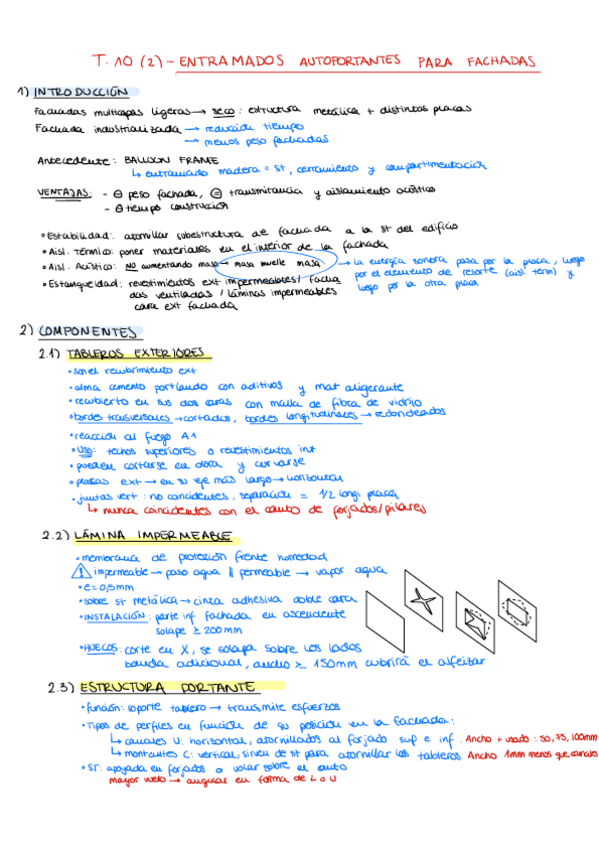 T. 10 (2) - ENTRAMADOS AUTOPORTANTES PARA FACHADAS
1) INTRODUCCIÓN
Fachadas multicapas ligeras → seco: estructura metálica + distintas placas
Fachada industrializada → reducción tiempo
→ menos peso fachadas
Antecedente: BALLOON FRAME
↳ entramado madera = st, cerramiento y compartimentación
VENTAJAS: - ⊖ peso fachada, ⊜ transmitancia y aislamiento acústico
- ⊖ tiempo construcción
• Estabilidad: atornillar subestructura de fachada a la st del edificio
• Aisl. Térmico: poner materiales en el interior de la fachada
• Aisl. Acústico: NO aumentando masa → masa muelle masa → La energía sonora pasa por la placa, luego
por el elemento de resorte (aisl. term) y
luego por la otra placa
• Estanqueidad: revestimientos ext impermeables / facha
das ventiladas / láminas impermeables
cara ext fachada
2) COMPONENTES
2.1) TABLEROS EXTERIORES
• son el recubrimiento ext
• alma cemento portland con aditivos y mat aligerante
• recubierto en sus dos caras con malla de fibra de vidrio
• bordes trasversales → cortados, bordes longitudinales → redondeados
• reacción al fuego A1
• USO: techos superiores o revestimientos int
• pueden cortarse en obra y curvarse
• placas ext → en su eje más largo → horizontal
• juntas vert: no coincidentes, separación = 1/2 longi placa
↳ nunca coincidentes con el canto de forjados/pilares
2.2) LÁMINA IMPERMEABLE
• membrana de protección frente humedad
⚠ impermeable → paso agua || permeable → vapor agua
• e = 0,5mm
• sobre st metálica → cinta adhesiva doble cara
• INSTALACIÓN: parte inf fachada en ascendente
solape ≥ 200mm
• HUECOS: corte en X, se solapa sobre los lados
banda adicional, ancho ≥ 150mm cubrirá el alfeizar
2.3) ESTRUCTURA PORTANTE
• función: soporte tablero → transmite esfuerzos
• Tipos de perfiles en función de su posición en la fachada:
↳ canales U: horizontal, atornillados al forjado sup e inf. Ancho + usado: 50, 75, 100mm
↳ montantes C: vertical, sirven de st para atornillar los tableros. Ancho 1mm menos que canales
• ST: apoyada en forjados o volar sobre el canto
mayor vuelo → angular en forma de L o U